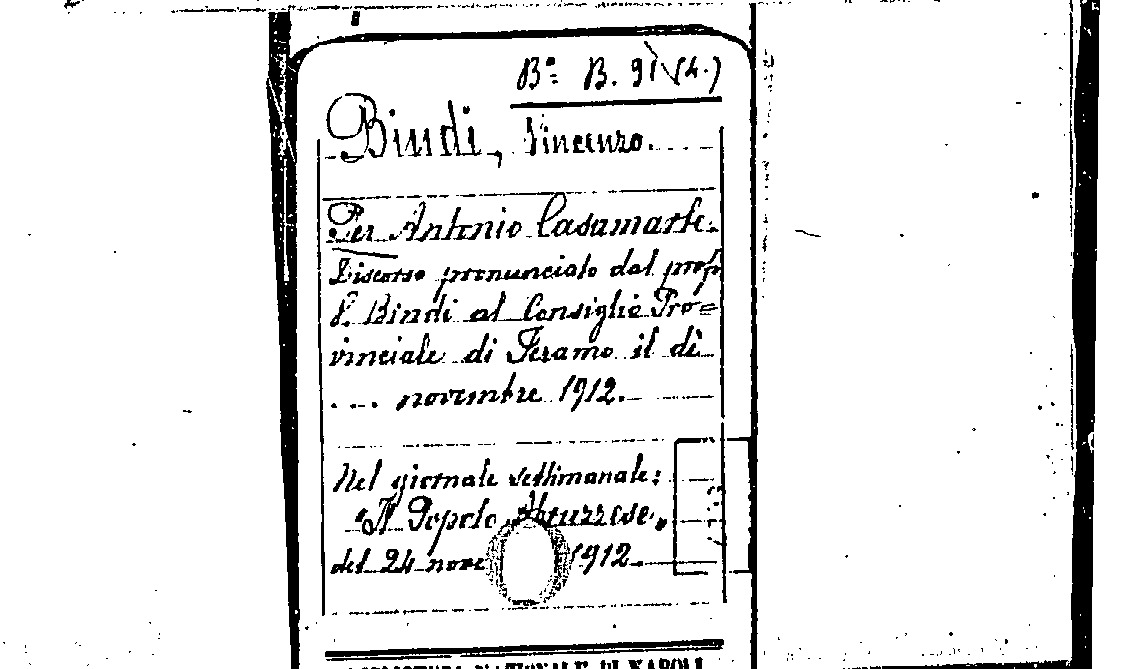 Bª B. 91 (4.)
Bindi, Vincenzo.
Per Antonio Casamarte.
Discorso pronunciato dal prof.
V. Bindi al Consiglio Pro=
vinciale di Teramo il dì
.... novembre 1912.
Nel giornale settimanale:
"Il Popolo Abruzzese"
del 24 nove 1912.
NAZIONALE DI NAPOLI